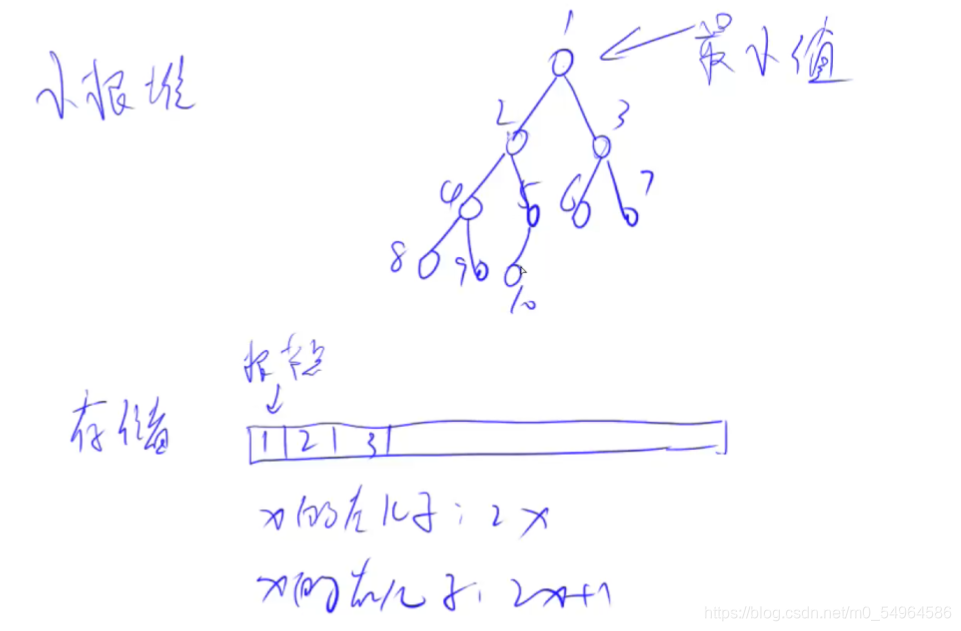 小根堆
最小值
1
2 3
4 5 6 7
8 9 10
根节点
存储
1 2 3
x的左儿子：2x
x的右儿子：2x+1
https://blog.csdn.net/m0_54964586